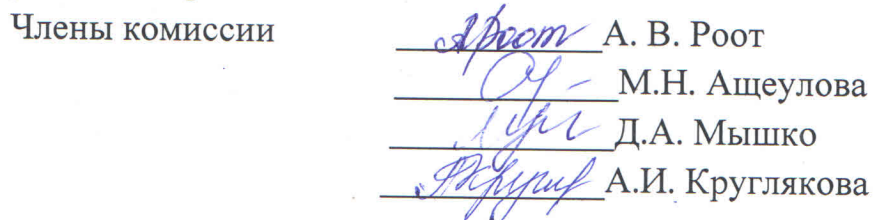 Члены комиссии ARoot А. В. Роот
М.Н. Ащеулова
Д.А. Мышко
А.И. Круглякова